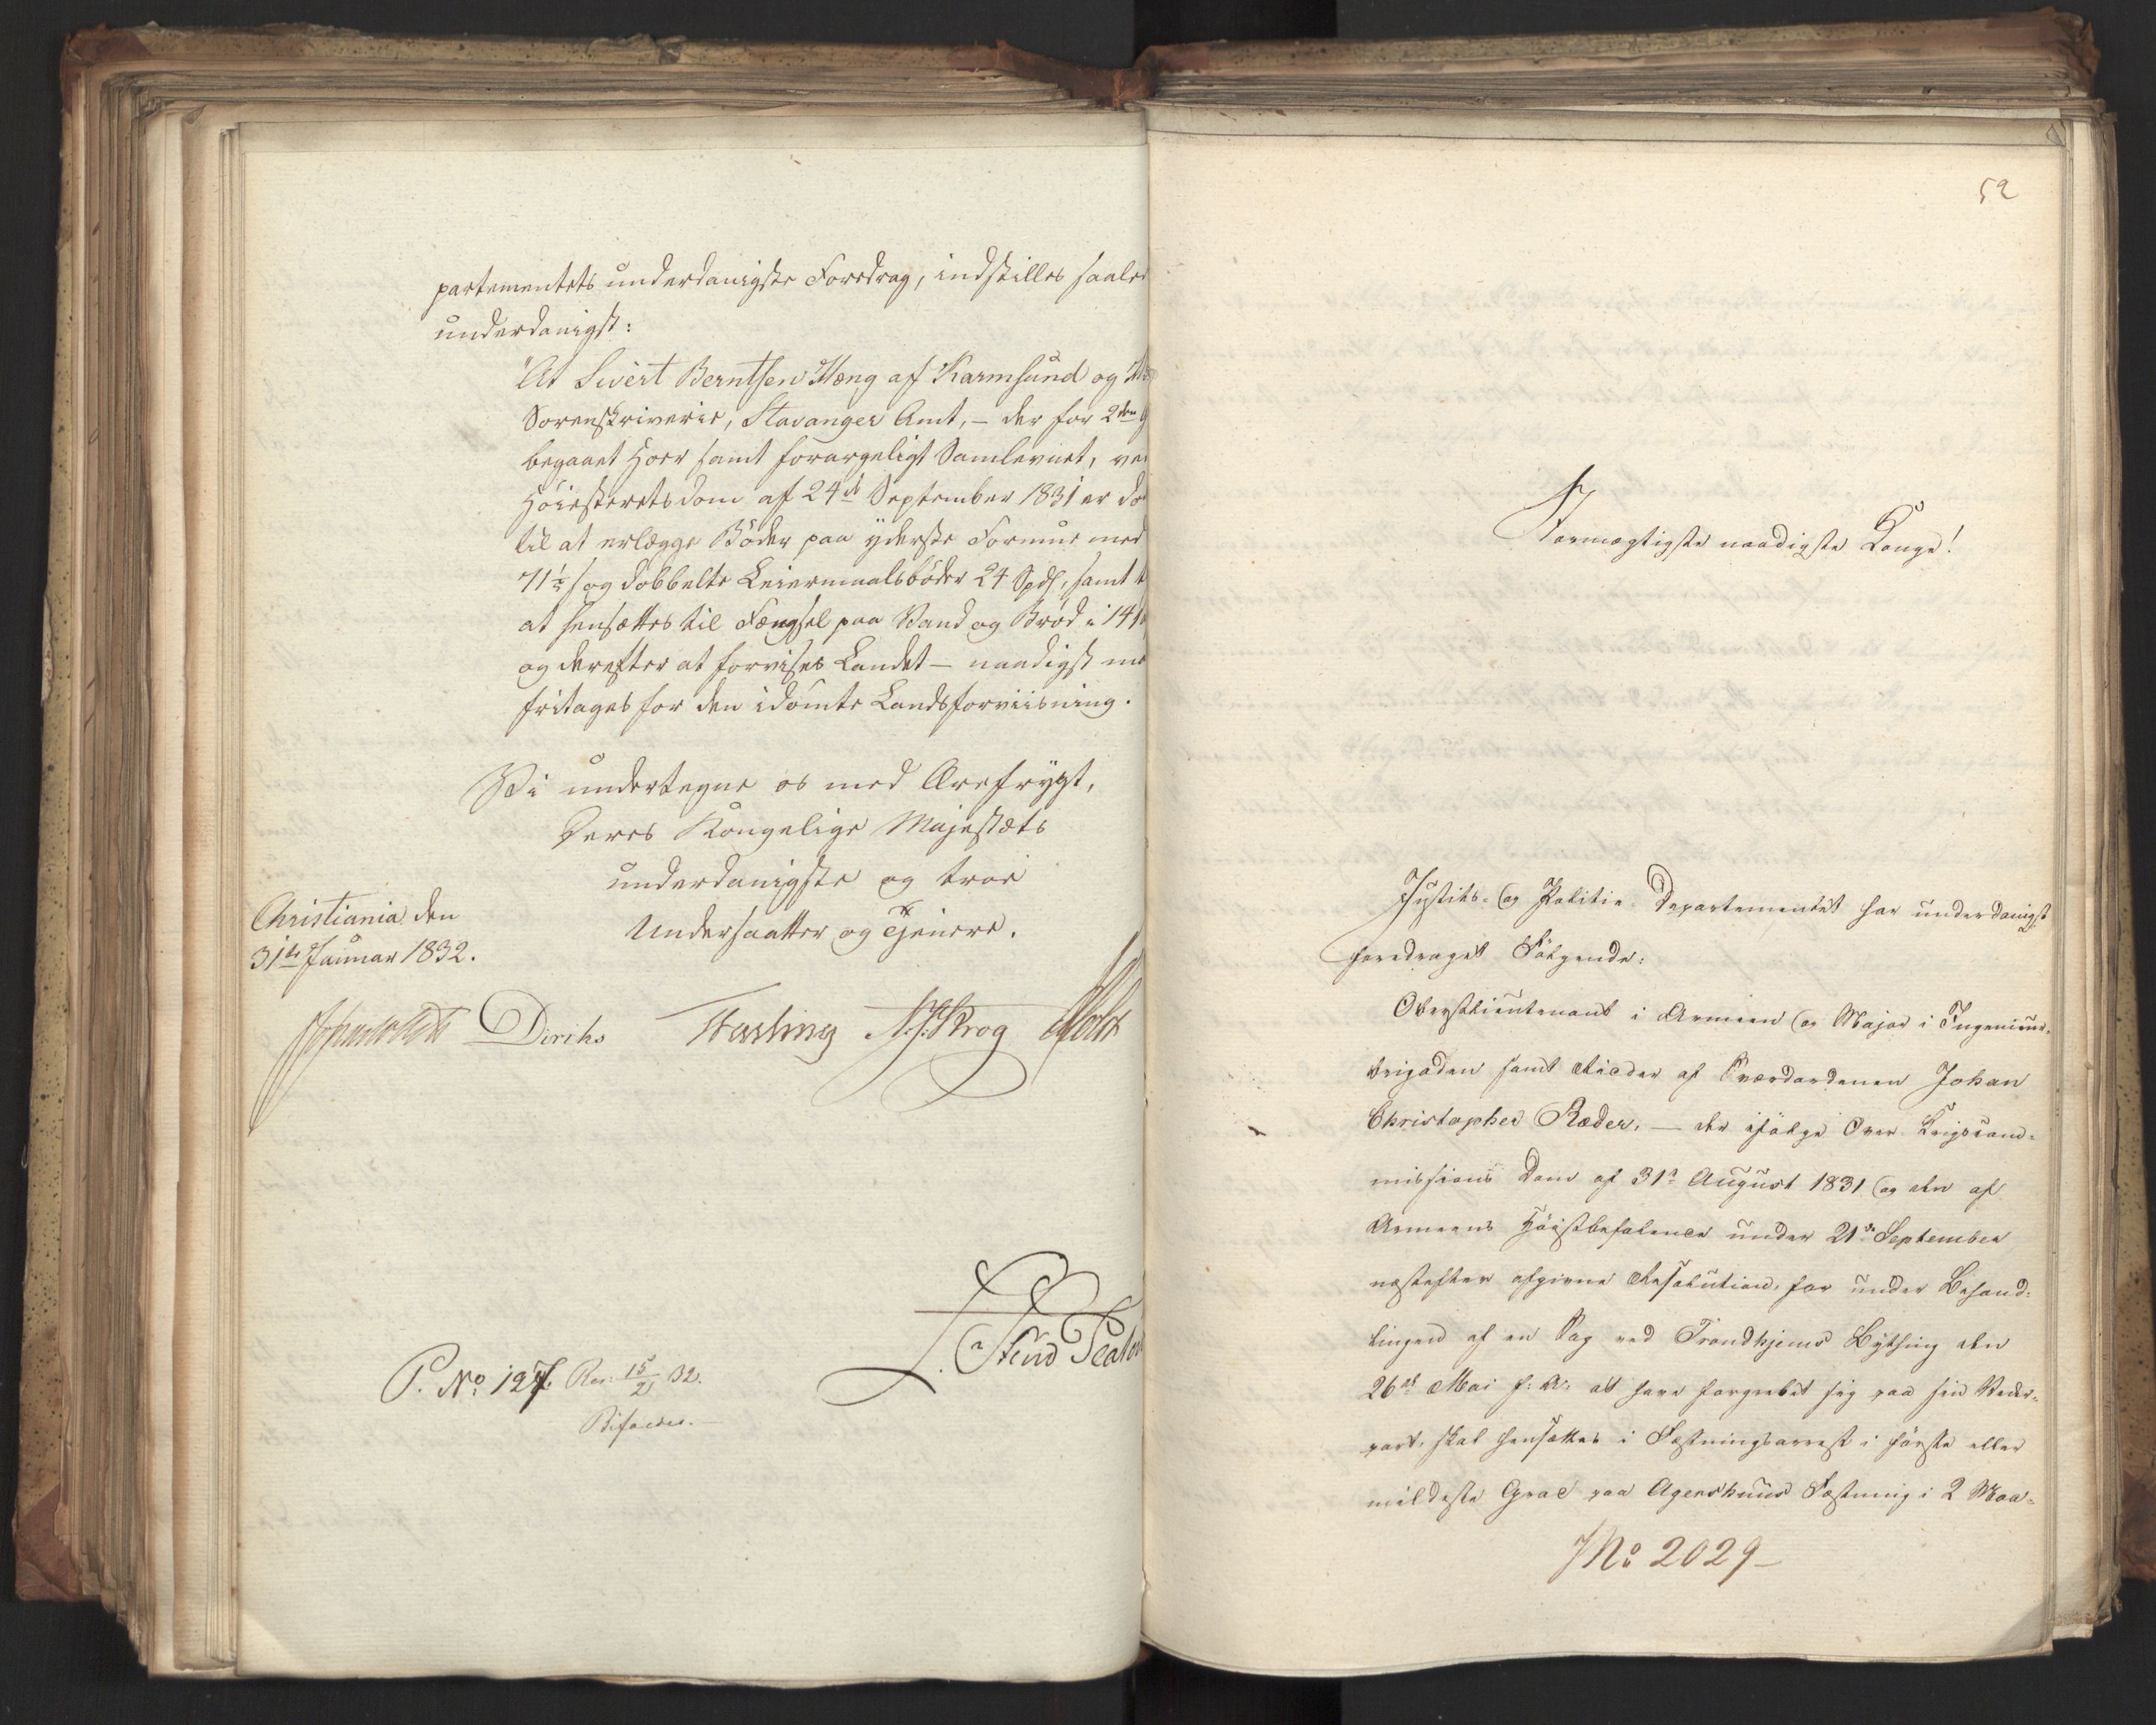 partementets underdanigste Foredrag, indstilles saaled
underdanigst:
"At Sivert Berntsen Mæng af Karmsund og
Sorenskriverie, Stavanger Amt, – der for 2den G
begaaet Hoer samt forargeligt Samlevnet, ved
Høiesteretsdom af 24de September 1831 er dø
til at erlægge Bøder paa yderste Formue med
71½ s og dobbelte Leiermaalsbøder 24 Spd, samt t
at hensættes til Fængsel paa Vand og Brød i 14
og derefter at forvises Landet – naadigst maa
fritages for den idømte Landsforviisning.
Vi undertegne os med Ærefrygt,
Deres Kongelige Majestæts
underdanigste og troe
Undersaatter og Tjenere.
Christiania den
31te Januar 1832.
Diriks Fasting Krog Holst
P. No. 127. Res. 15/2 32.
Bifaldes.
52
Stormægtigste naadigste Konge!
Justits- og Politie-Departementet har underdanigst
foredraget Følgende:
Oberstlieutenant i Armeen og Major i Ingenieur-
brigaden samt Ridder af Sværdordenen Johan
Christopher Ræder, – der ifølge Over-Krigscom-
missions Dom af 31te August 1831 og den af
Armeens Høistbefalende under 21de September
næstefter afgivne Resolution, for under Behand-
lingen af en Sag ved Trondhjems Bything den
26de Mai f: A: at have forgrebet sig paa sin Veder-
part, skal hensættes i Fæstningsarrest i første eller
mildeste Grad paa Agershuus Fæstning i 2 Maa-
No 2029